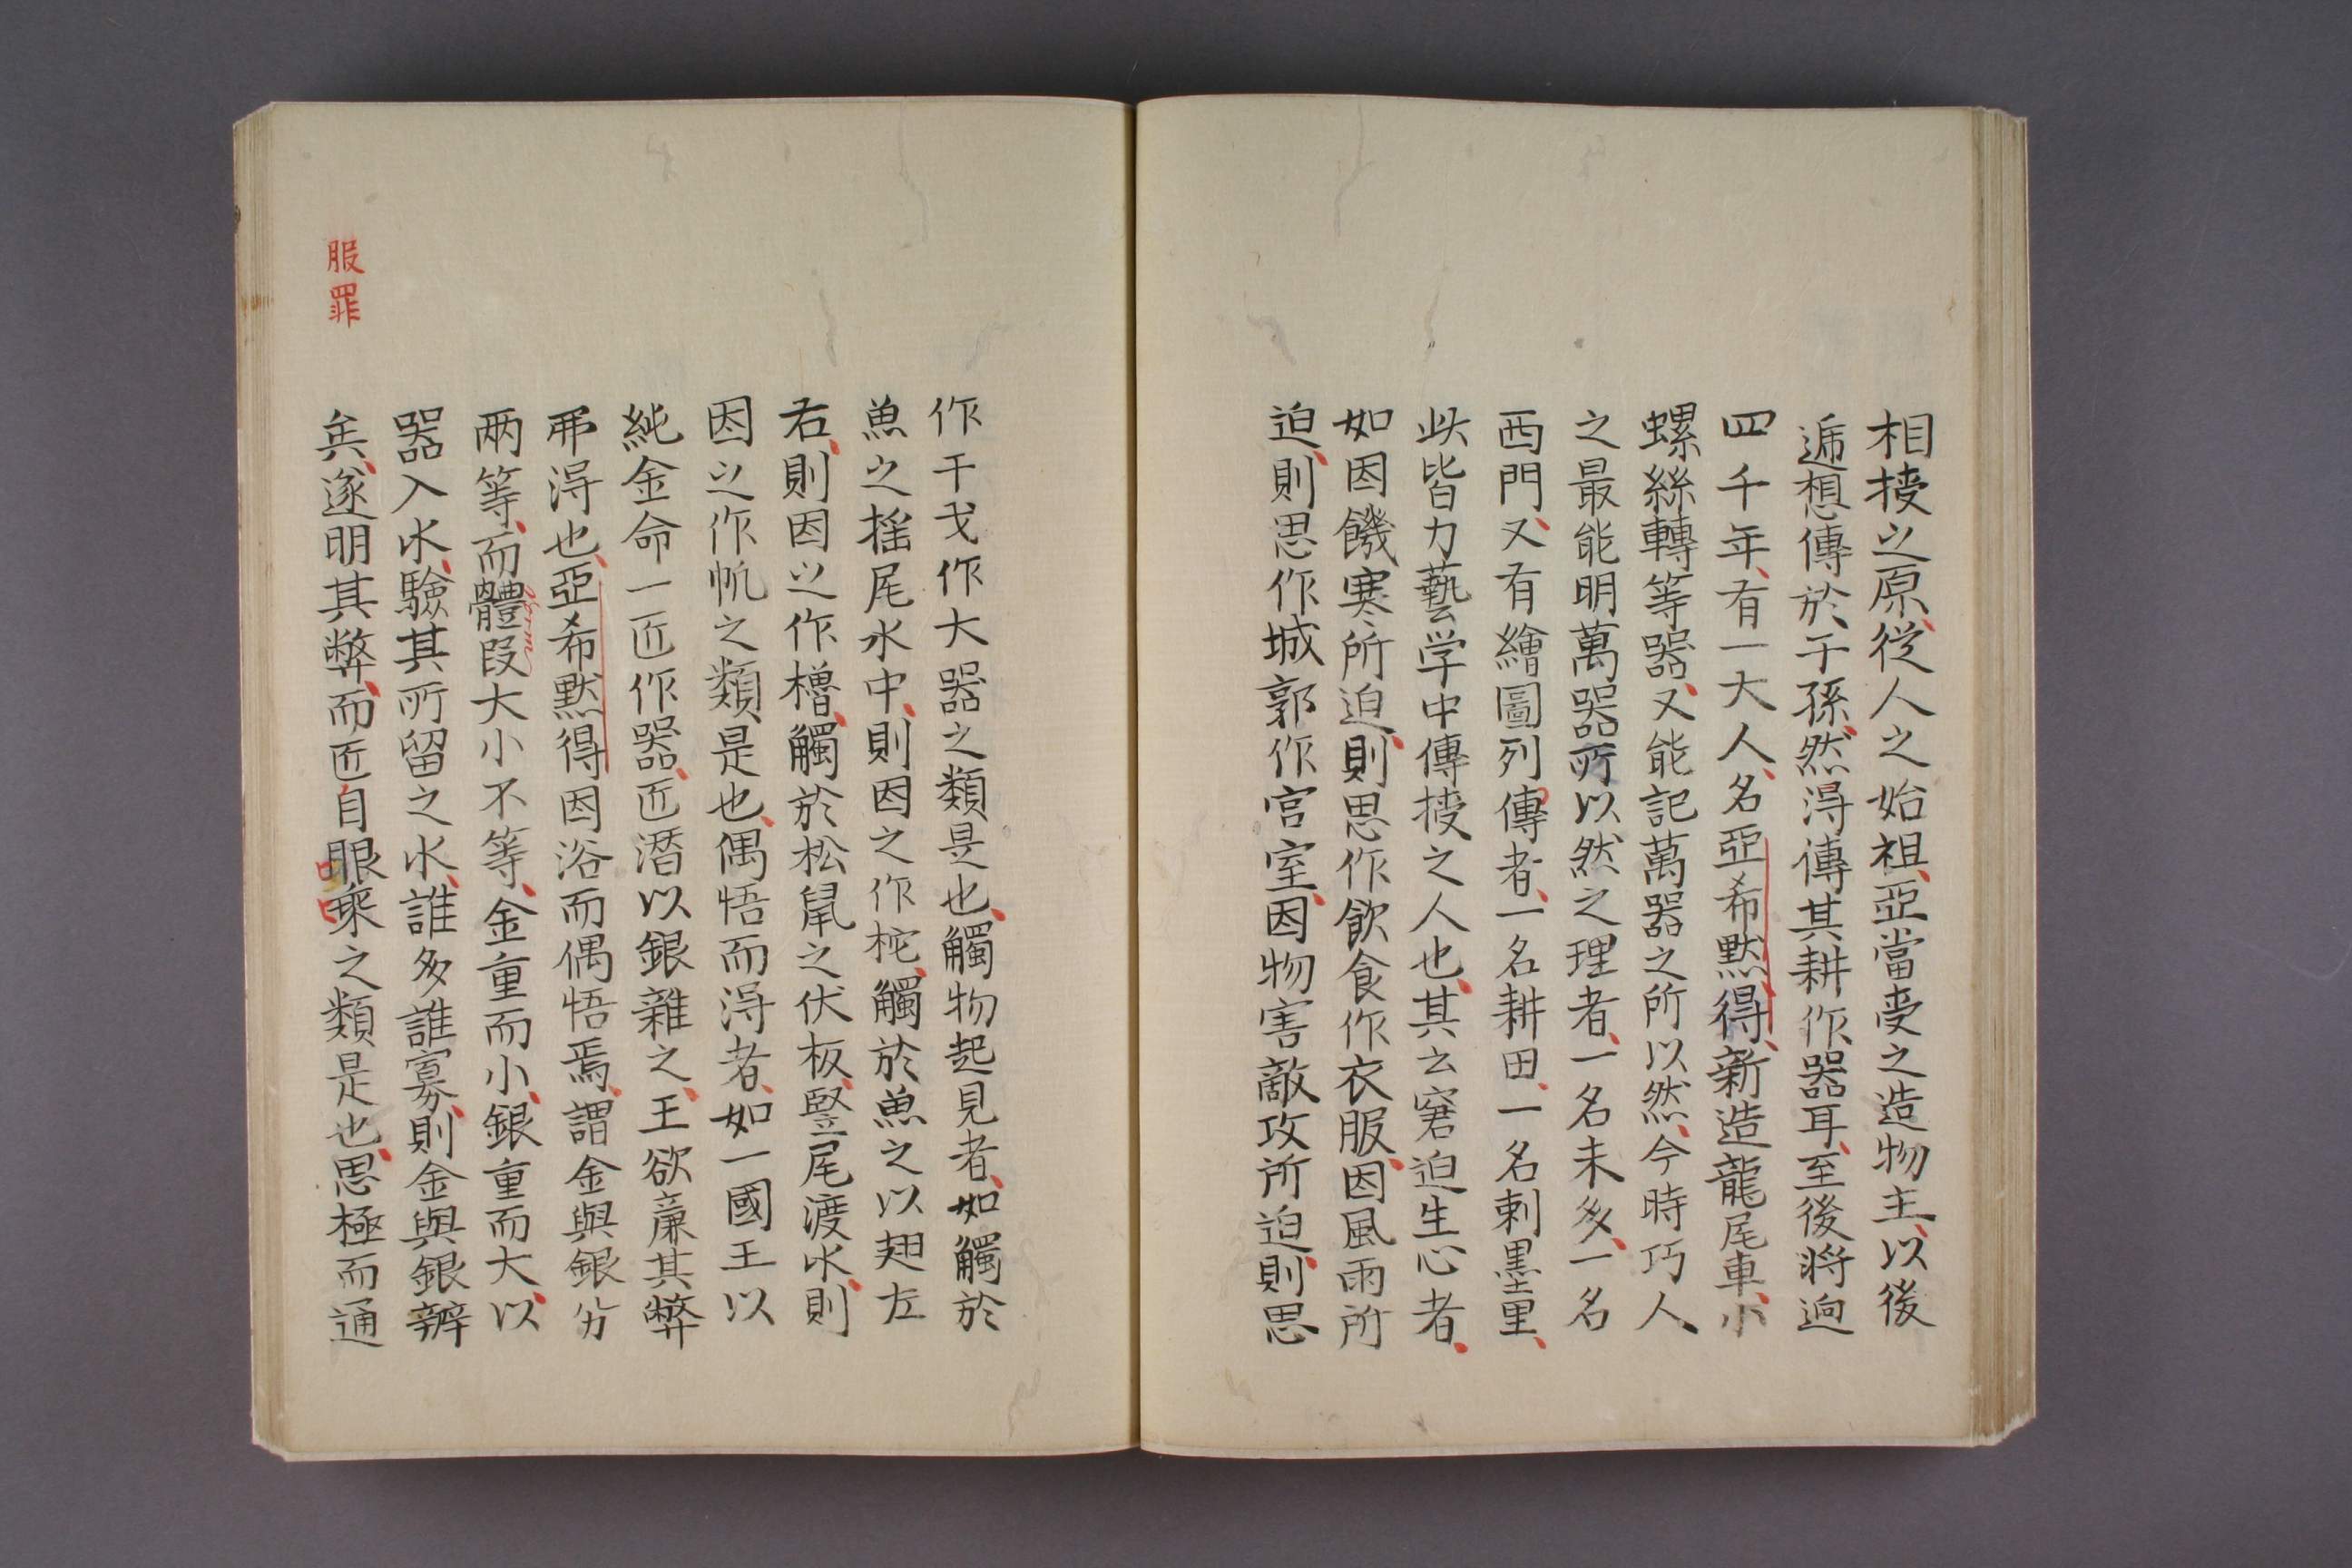 相授之原、從人之始祖、亞當受之造物主、以後
遞想傳於干孫、然淂傳其耕作器耳、至後將逈
四千年、有一大人、名亞希默得、新造龍尾車、小
螺絲轉等器、又能記萬器之所以然、今時巧人
之最能明萬器所以然之理者、一名未多、一名
西門、又有繪圖列傳者、一名耕田、一名刺墨里、
此皆力藝学中傳授之人也、其云窘迫生心者、
如因饑寒所迫、則思作飲食作衣服、因風雨所
迫、則思作城郭作宮室、因物害敵攻所迫、則思
作干戈作大器之類是也、觸物起見者、如觸於
魚之揺尾水中、則因之作柁、觸於魚之以翅左
右、則因之作櫓、觸於松鼠之伏板、竪尾渡水、則
因之作帆之類是也、偶悟而淂者、如一國王以
純金命一匠作器、匠潛以銀雜之、王欲廉其弊
弗淂也、亞希默得因浴而偶悟焉、謂金與銀分
两等、而體段大小不等、金重而小、銀重而大、以
器入水、驗其所留之水、誰多誰寡、則金與銀辨
矣、遂明其弊、而匠自眼乘之類是也、思極而通
服罪